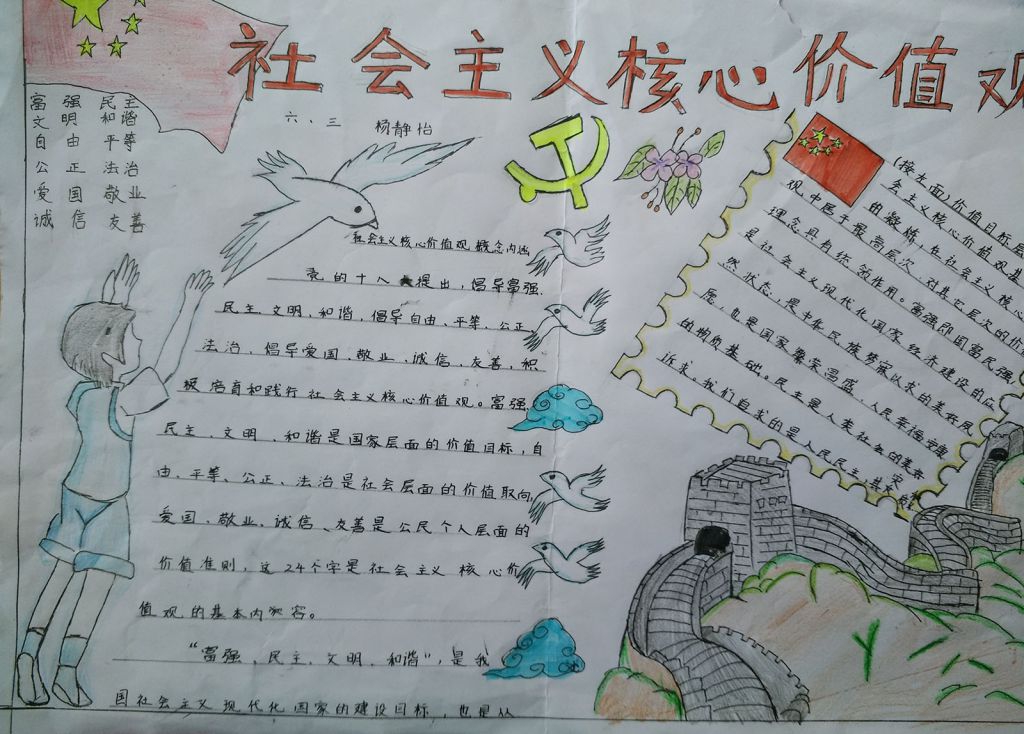 社会主义核心价值观
六、三 杨静怡
富强 民主
文明 和谐
自由 平等
公正 法治
爱国 敬业
诚信 友善
社会主义核心价值观概念内涵
党的十八大提出，倡导富强、
民主、文明、和谐，倡导自由、平等、公正、
法治，倡导爱国、敬业、诚信、友善，积
极培育和践行社会主义核心价值观。富强、
民主、文明、和谐是国家层面的价值目标，自
由、平等、公正、法治是社会层面的价值取向，
爱国、敬业、诚信、友善是公民个人层面的
价值准则，这24个字是社会主义核心价
值观的基本内容。
“富强、民主、文明、和谐”，是我
国社会主义现代化国家的建设目标，也是从
(接左面)价值目标层
的凝炼，在社会主义核心价值观基
会主义核心
观中居于最高层次，对其它层次的价
理念具有统领作用。富强即国富民强，
是社会主义现代化国家经济建设的应
然状态，是中华民族梦寐以求的美好夙
愿，也是国家繁荣昌盛，人民幸福安康
的物质基础。民主是人类社会的美好
诉求。我们追求的是人民民主，其实